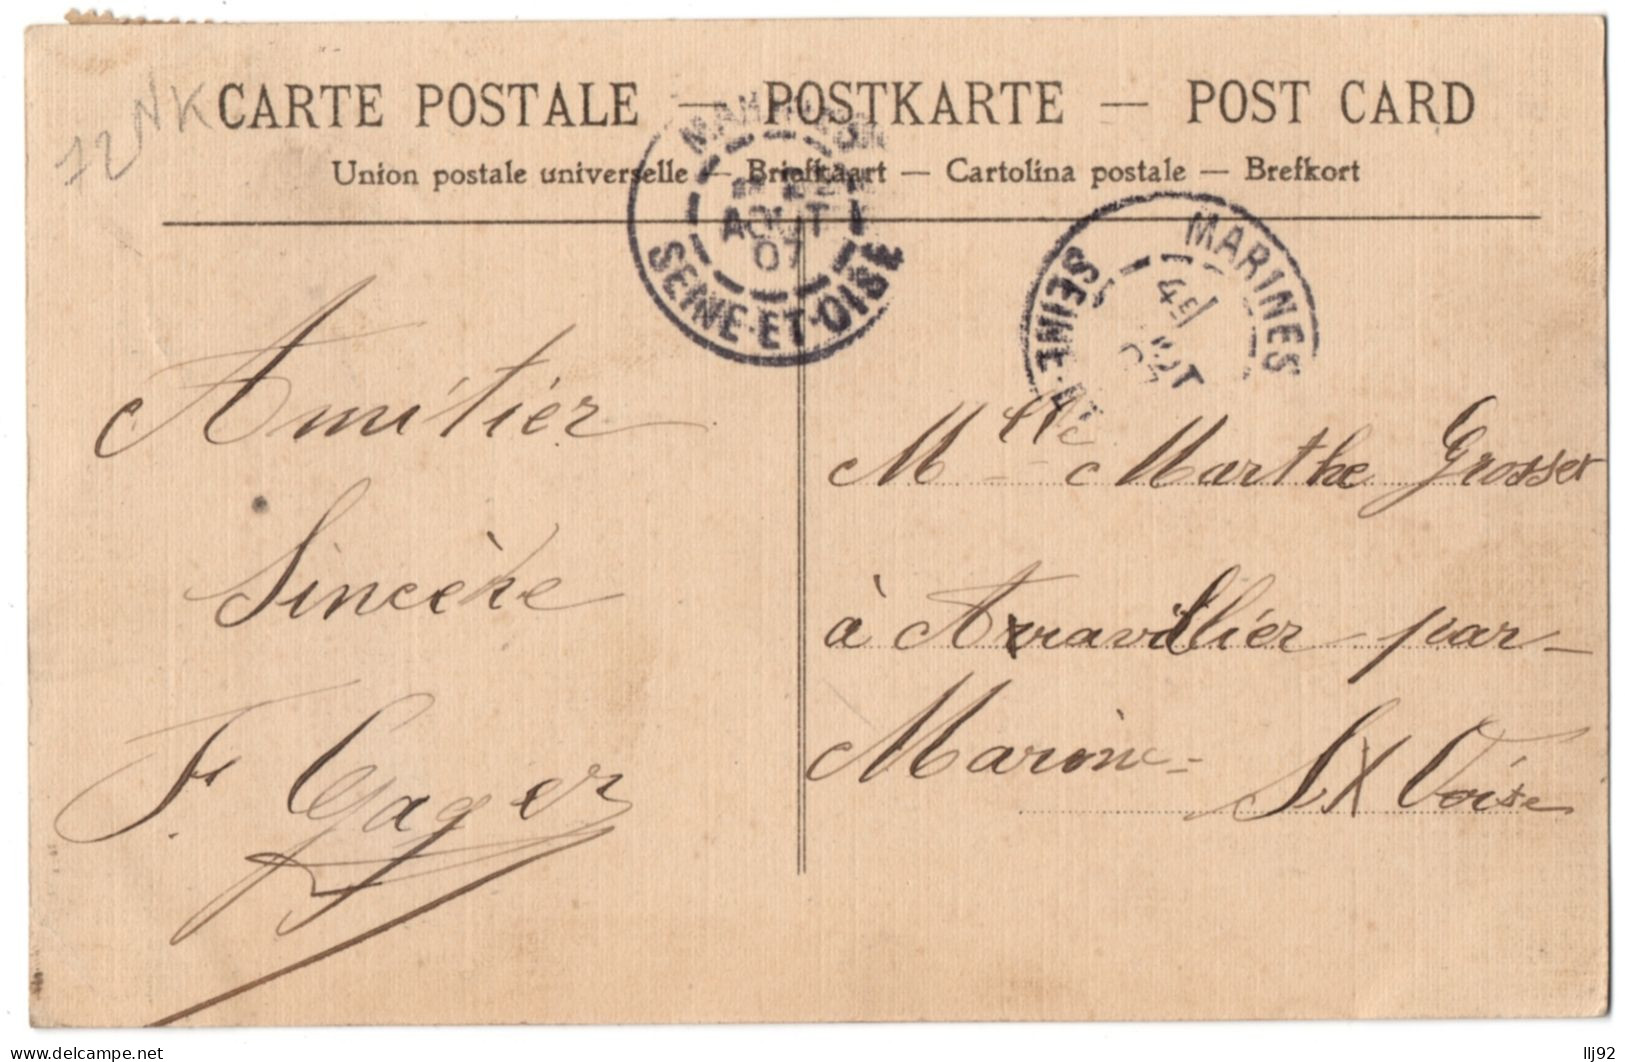 72 NK
CARTE POSTALE — POSTKARTE — POST CARD
Union postale universelle — Briefkaart — Cartolina postale — Brefkort
AOUT
07
SEINE-ET-OISE
MARINES
4E
SEINE-ET
Amitier
Sincère
F. Gager
Mlle Marthe Grosset
à Arravillier par
Marine
S X Oise
llj92